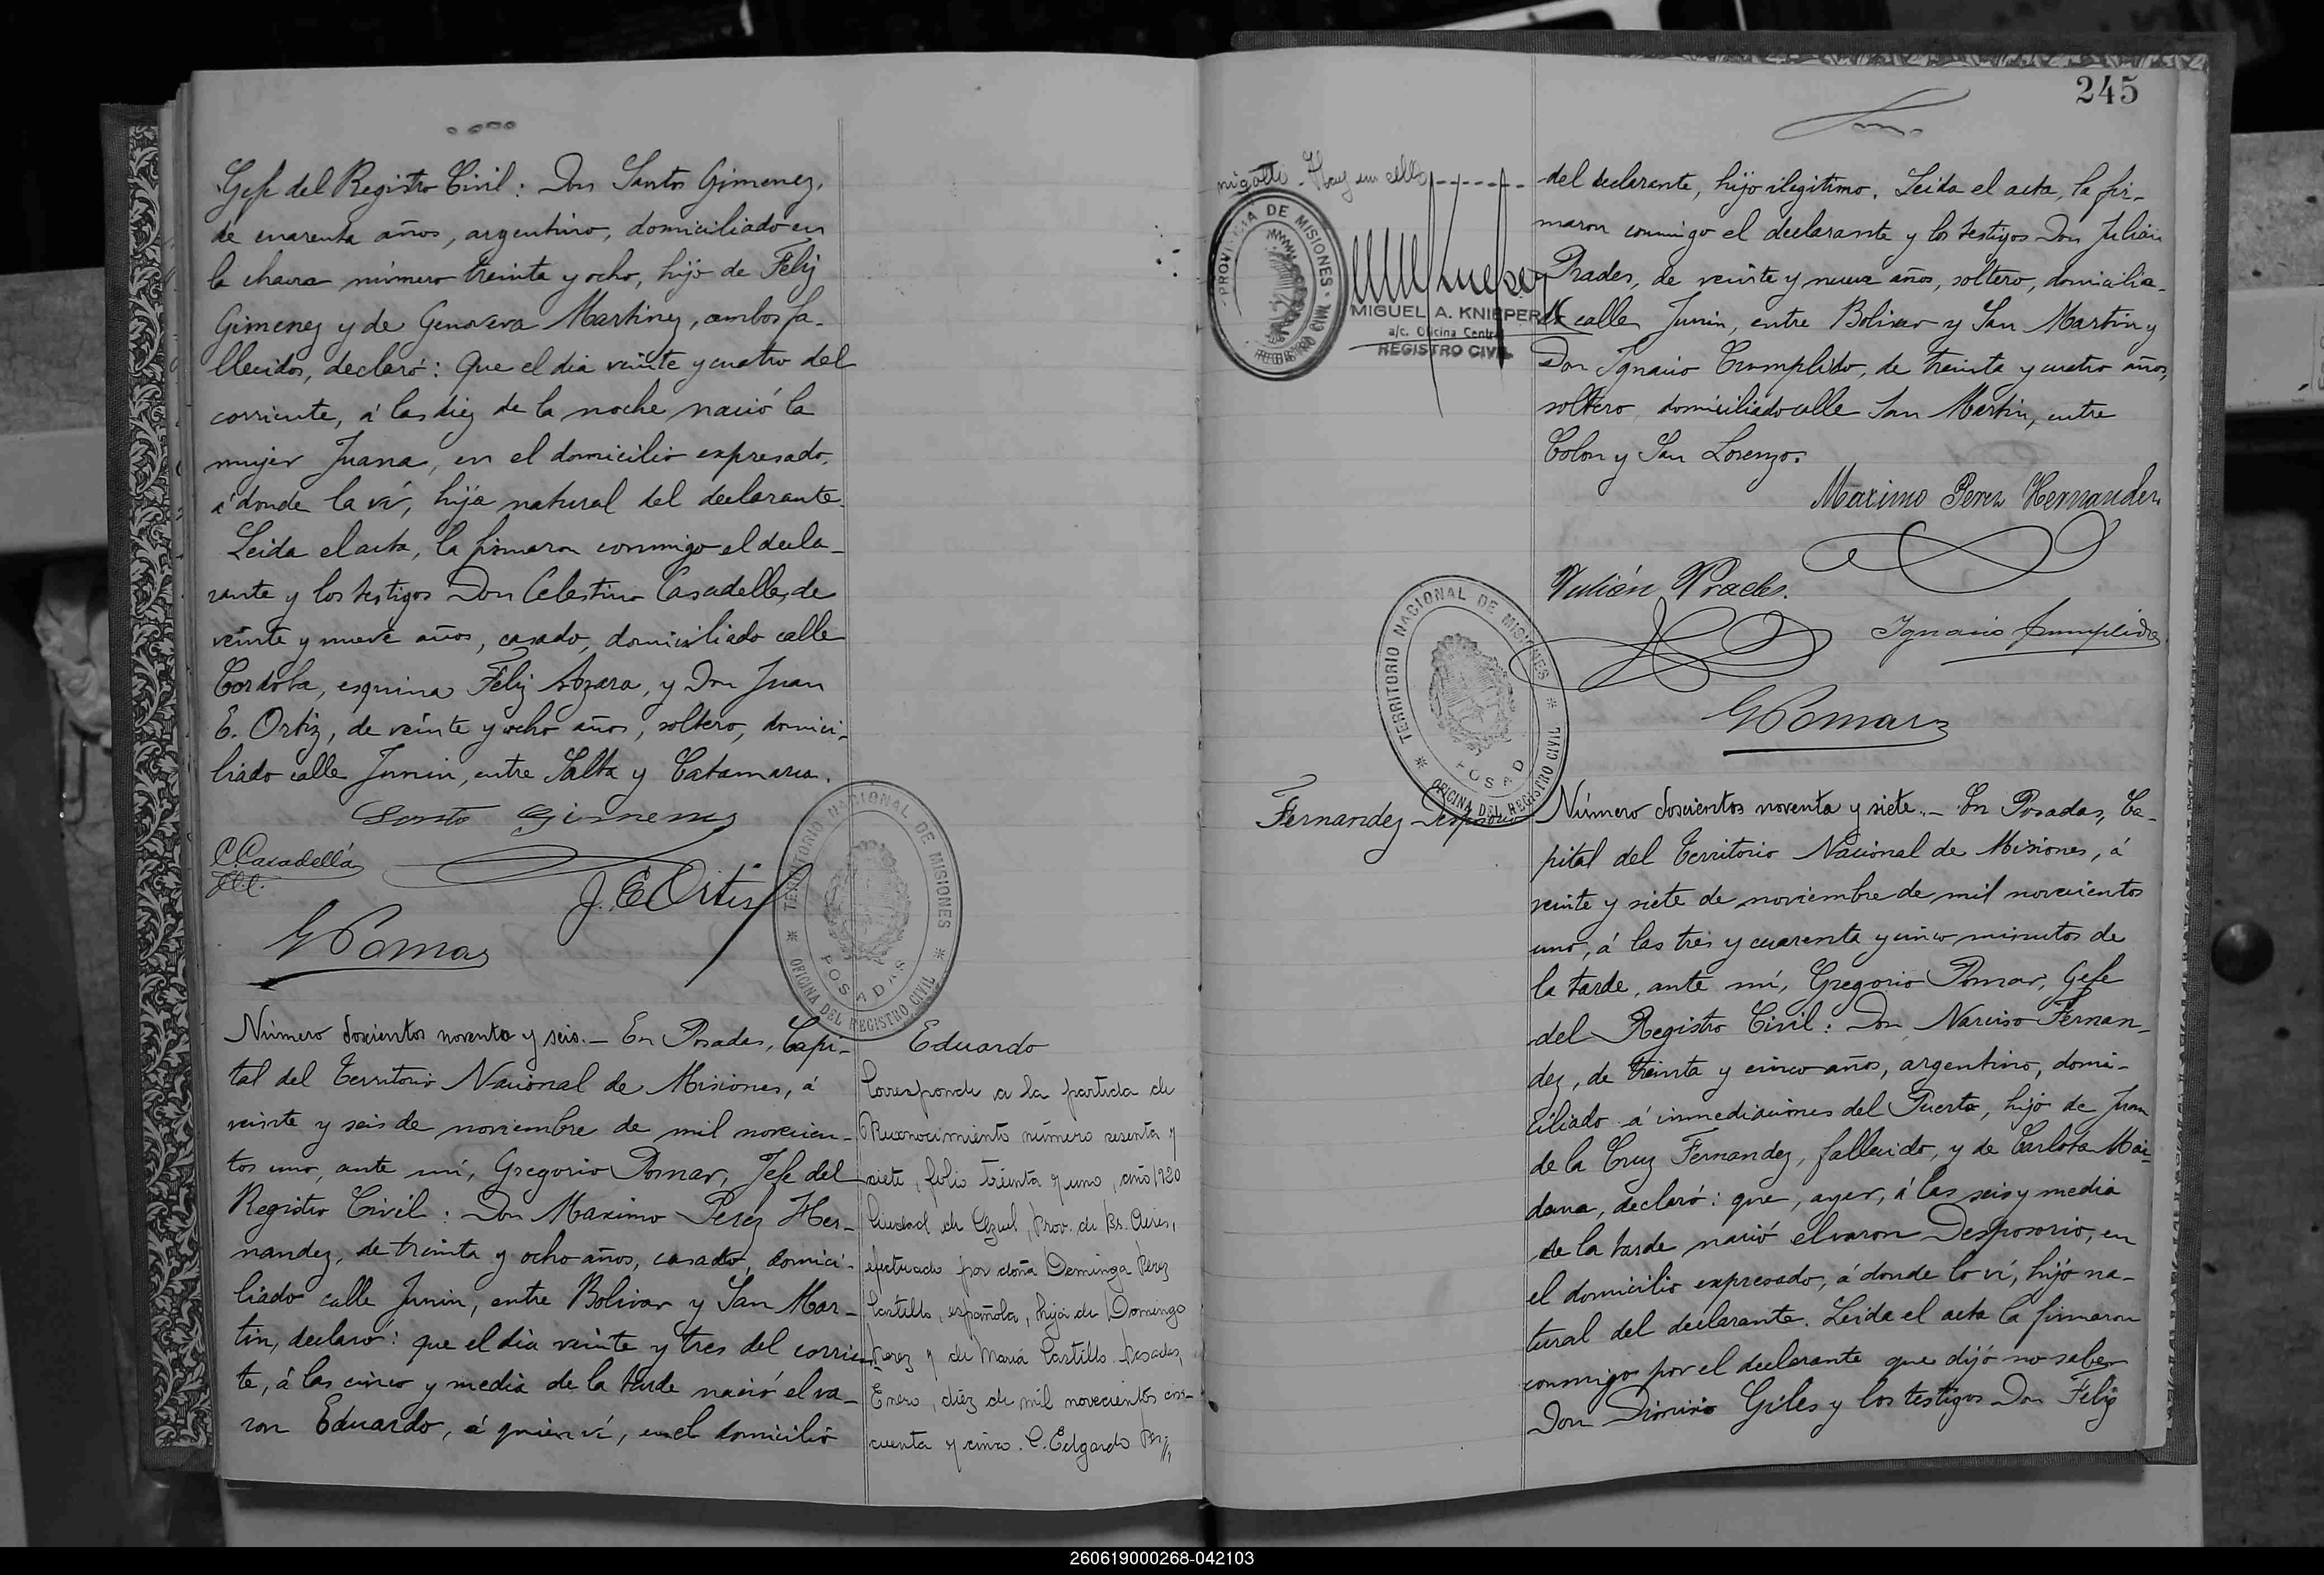 Gefe del Registro Civil: Don Santos Gimenez,
de cuarenta años, argentino, domiciliado en
la chacra número treinta y ocho, hijo de Feliz
Gimenez y de Genoveva Martinez, ambos fa-
llecidos, declaró: Que el dia veinte y cuatro del
corriente, á las diez de la noche nació la
mujer Juana, en el domicilio expresado,
á donde la ví, hija natural del declarante.
Leida el acta, la firmaron conmigo el decla-
rante y los testigos Don Celestino Casadella, de
veinte y nueve años, casado, domiciliado calle
Cordoba, esquina Feliz Azara, y Don Juan
E. Ortiz, de veinte y ocho años, soltero, domici-
liado calle Junin, entre Salta y Catamarca.
Santo Gimenez
C. Casadella
J. E. Ortiz
G Pomar
TERRITORIO NACIONAL DE MISIONES
POSADAS
OFICINA DEL REGISTRO CIVIL
Número doscientos noventa y seis.- En Posadas, Capi-
tal del Territorio Nacional de Misiones, á
veinte y seis de noviembre de mil novecien-
tos uno, ante mí, Gregorio Pomar, Jefe del
Registro Civil: Don Maximo Perez Her-
nandez, de treinta y ocho años, casado, domici-
liado calle Junin, entre Bolivar y San Mar-
tin, declaró: que el dia veinte y tres del corrien-
te, á las cinco y media de la tarde nació el va-
ron Eduardo, á quien ví, en el domicilio
Eduardo
Corresponde a la partida de
Reconocimiento número sesenta y
siete, folio treinta y uno, año 1920
Ciudad de Azul, Prov. de Bs. Aires,
efectuado por doña Dominga Perez
Castillo, española, hija de Domingo
Perez y de María Castillo. Posadas,
Enero, diez de mil novecientos cin-
cuenta y cinco. C. Edgardo
245
Hay un sello
PROVINCIA DE MISIONES
REGISTRO CIVIL
MIGUEL A. KNIEPER
a/c. Oficina Central
REGISTRO CIVIL
del declarante, hijo ilegitimo. Leida el acta, la fir-
maron conmigo el declarante y los testigos Don Julian
Prades, de veinte y nueve años, soltero, domicilia-
do calle Junin, entre Bolivar y San Martin y
Don Ignacio Cumplido, de treinta y cuatro años,
soltero, domiciliado calle San Martin, entre
Colon y San Lorenzo.
Maximo Perez Hernandez
Julián Prades.
Ignacio Cumplido
G Pomar
TERRITORIO NACIONAL DE MISIONES
POSAD
OFICINA DEL REGISTRO CIVIL
Fernandez Desposorio
Número doscientos noventa y siete.- En Posadas, Ca-
pital del Territorio Nacional de Misiones, á
veinte y siete de noviembre de mil novecientos
uno, á las tres y cuarenta y cinco minutos de
la tarde, ante mí, Gregorio Pomar, Gefe
del Registro Civil: Don Narciso Fernan-
dez, de treinta y cinco años, argentino, domi-
ciliado á inmediaciones del Puerto, hijo de Juan
de la Cruz Fernandez, fallecido, y de Carlota Mai-
dana, declaró: que, ayer, á las seis y media
de la tarde nació el varon Desposorio, en
el domicilio expresado, á donde lo ví, hijo na-
tural del declarante. Leida el acta la firmaron
conmigo por el declarante que dijo no saber
Don Dionisio Giles y los testigos Don Feliz
260619000268-042103